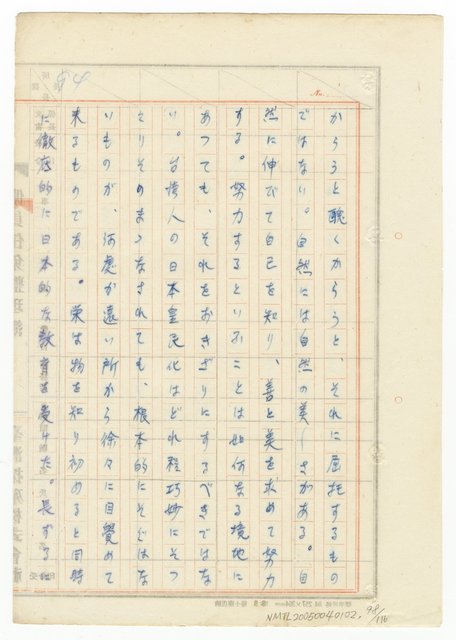 からうと醜くからうと、それに屈托するもの
ではない。自然には自然の美しさがある。自
然に伸びて自己を知り、善と美を求めて努力
する。努力するといふことは如何なる境地に
あつても、それをおきざりにするべきではな
い。台湾人の日本皇民化はどれ程巧妙にそつ
くりそのまゝなされても、根本的にそぐはな
いものが、何處か遠い所から徐々に目覺めて
来るものである。栄は物を知り初めると同時
に徹底的に日本的な教育を受けた。長ずる
94
No.
NMTL20050040102, 98/116